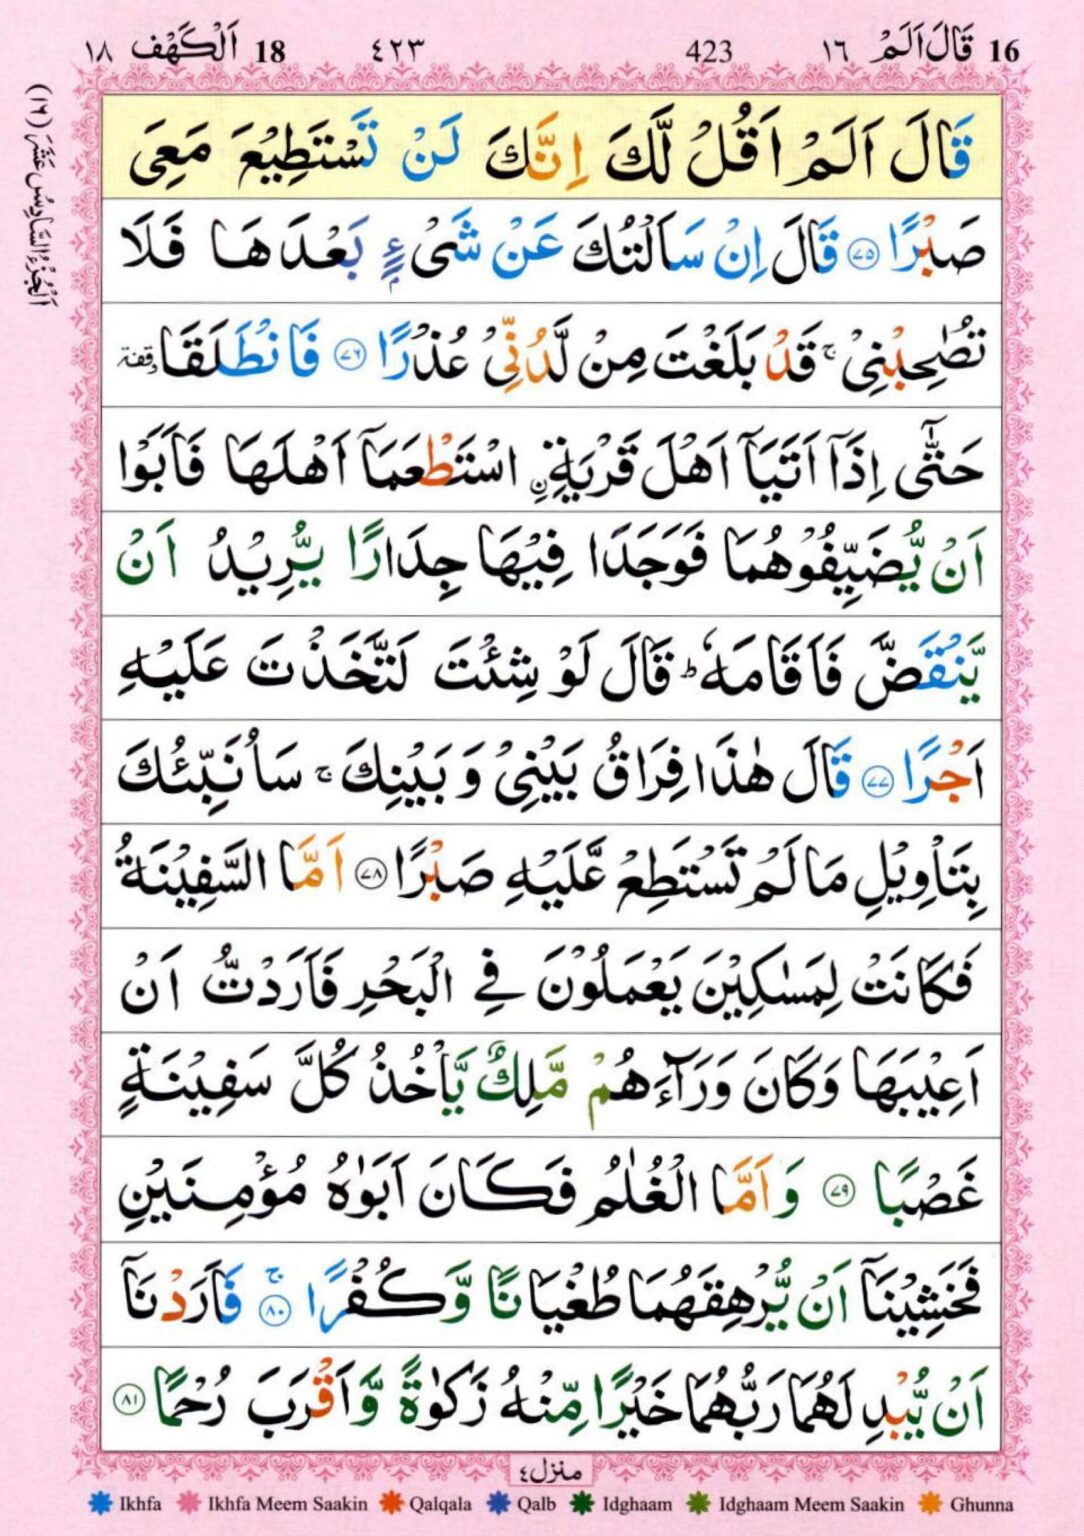 16 قَالَ اَلَمْ ١٦ 423 ٤٢٣ 18 اَلْكَهْف ١٨
اَلْجُزْءُ السَّادِسُ عَشَرَ (١٦)
قَالَ اَلَمْ اَقُلْ لَّكَ اِنَّكَ لَنْ تَسْتَطِيْعَ مَعِیَ
صَبْرًا ۝٧٥ قَالَ اِنْ سَاَلْتُكَ عَنْ شَیْءٍۭ بَعْدَهَا فَلَا
تُصٰحِبْنِیْ ۚ قَدْ بَلَغْتَ مِنْ لَّدُنِّیْ عُذْرًا ۝٧٦ فَانْطَلَقَا وقفة
حَتّٰۤی اِذَاۤ اَتَيَاۤ اَهْلَ قَرْيَةِ ِ۟اسْتَطْعَمَاۤ اَهْلَهَا فَاَبَوْا
اَنْ يُّضَيِّفُوْهُمَا فَوَجَدَا فِيْهَا جِدَارًا يُّرِيْدُ اَنْ
يَّنْقَضَّ فَاَقَامَهٗ ؕ قَالَ لَوْ شِئْتَ لَتَّخَذْتَ عَلَيْهِ
اَجْرًا ۝٧٧ قَالَ هٰذَا فِرَاقُ بَيْنِیْ وَ بَيْنِكَ ۚ سَاُنَبِّئُكَ
بِتَاْوِيْلِ مَا لَمْ تَسْتَطِعْ عَّلَيْهِ صَبْرًا ۝٧٨ اَمَّا السَّفِيْنَةُ
فَكَانَتْ لِمَسٰكِيْنَ يَعْمَلُوْنَ فِی الْبَحْرِ فَاَرَدْتُّ اَنْ
اَعِيْبَهَا وَكَانَ وَرَآءَهُمْ مَّلِكٌ يَّاْخُذُ كُلَّ سَفِيْنَةٍ
غَصْبًا ۝٧٩ وَاَمَّا الْغُلٰمُ فَكَانَ اَبَوٰهُ مُؤْمِنَيْنِ
فَخَشِيْنَاۤ اَنْ يُّرْهِقَهُمَا طُغْيَانًا وَّكُفْرًا ۝٨٠ ۚ فَاَرَدْنَاۤ
اَنْ يُّبْدِلَهُمَا رَبُّهُمَا خَيْرًا مِّنْهُ زَكٰوةً وَّاَقْرَبَ رُحْمًا ۝٨١
منزل ٤
Ikhfa Ikhfa Meem Saakin Qalqala Qalb Idghaam Idghaam Meem Saakin Ghunna